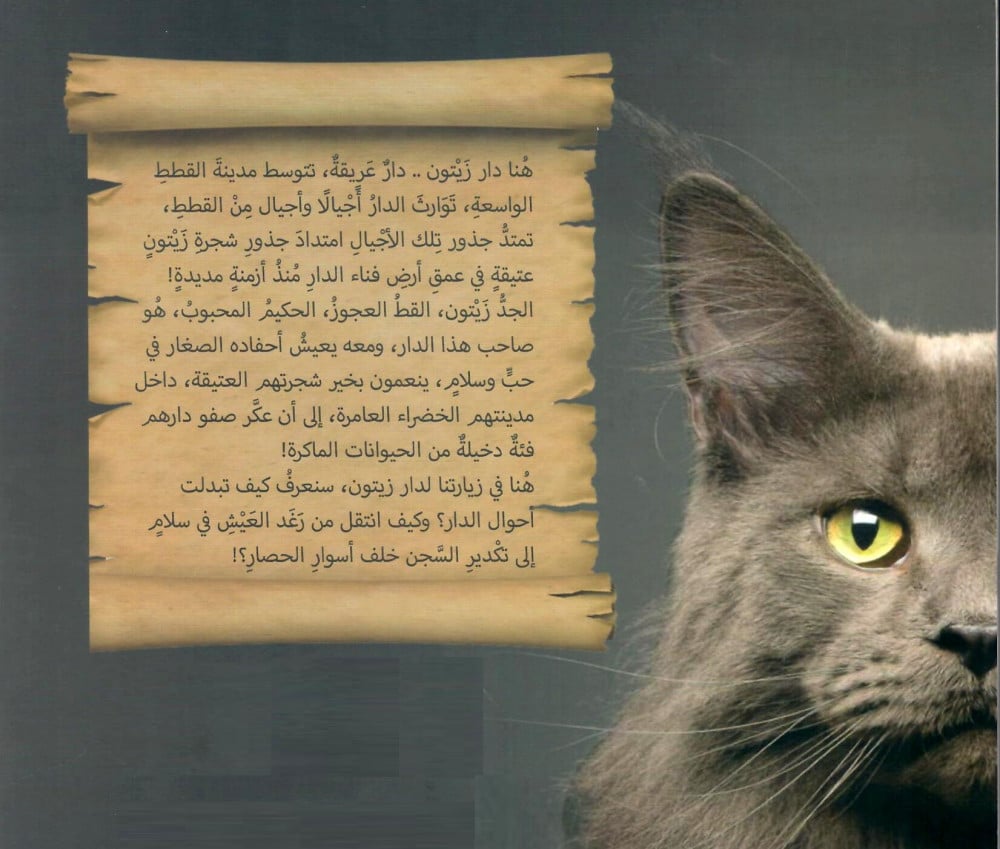 هُنا دار زَيْتون .. دارٌ عَرِيقةٌ، تتوسط مدينةَ القططِ
الواسعةِ، تَوَارثَ الدارُ أَجْيالًا وأجيال مِنْ القططِ،
تمتدُّ جذور تِلك الأجْيالِ امتدادَ جذورِ شجرةِ زَيْتونٍ
عتيقةٍ في عمقِ أرضِ فناء الدارِ مُنذُ أزمنةٍ مديدةٍ!
الجدُّ زَيْتون، القطُ العجوزُ، الحكيمُ المحبوبُ، هُو
صاحب هذا الدار، ومعه يعيشُ أحفاده الصغار في
حبٍّ وسلامٍ، ينعمون بخير شجرتهم العتيقة، داخل
مدينتهم الخضراء العامرة، إلى أن عكَّر صفو دارهم
فئةٌ دخيلةٌ من الحيوانات الماكرة!
هُنا في زيارتنا لدار زيتون، سنعرفُ كيف تبدلت
أحوال الدار؟ وكيف انتقل من رَغَد العَيْشِ في سلامٍ
إلى تكْديرِ السَّجن خلف أسوارِ الحصارِ؟!